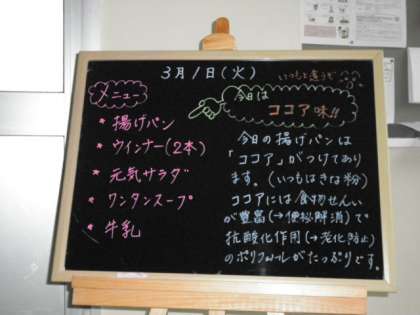 3月1日(火)
いつもと違うぞ
メニュー
今日は
ココア味!!
* 揚げパン
* ウインナー(2本)
* 元気サラダ
* ワンタンスープ
* 牛乳
今日の揚げパンは
「ココア」がつけてあり
ます。(いつもはきな粉)
ココアには食物せんい
が豊富(→便秘解消)で
抗酸化作用(→老化防止)
のポリフェノールがたっぷりです。